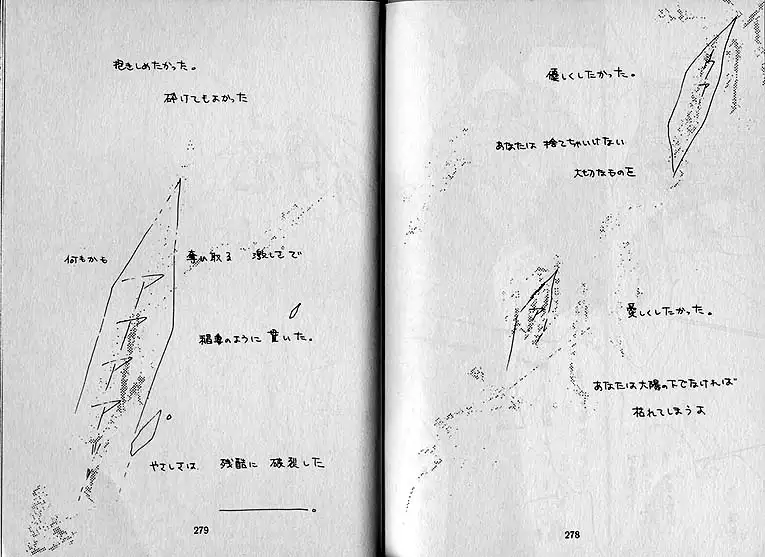 優しくしたかった。
あなたは 捨てちゃいけない
大切なものを
ア
愛しくしたかった。
あなたは太陽の下でなければ
枯れてしまうよ
278
抱きしめたかった。
砕けてもよかった
何もかも 奪い取る 激しさで
ア
ア
ア
ア
稲妻のように 貫いた。
やさしさは 残酷に 破裂した
279